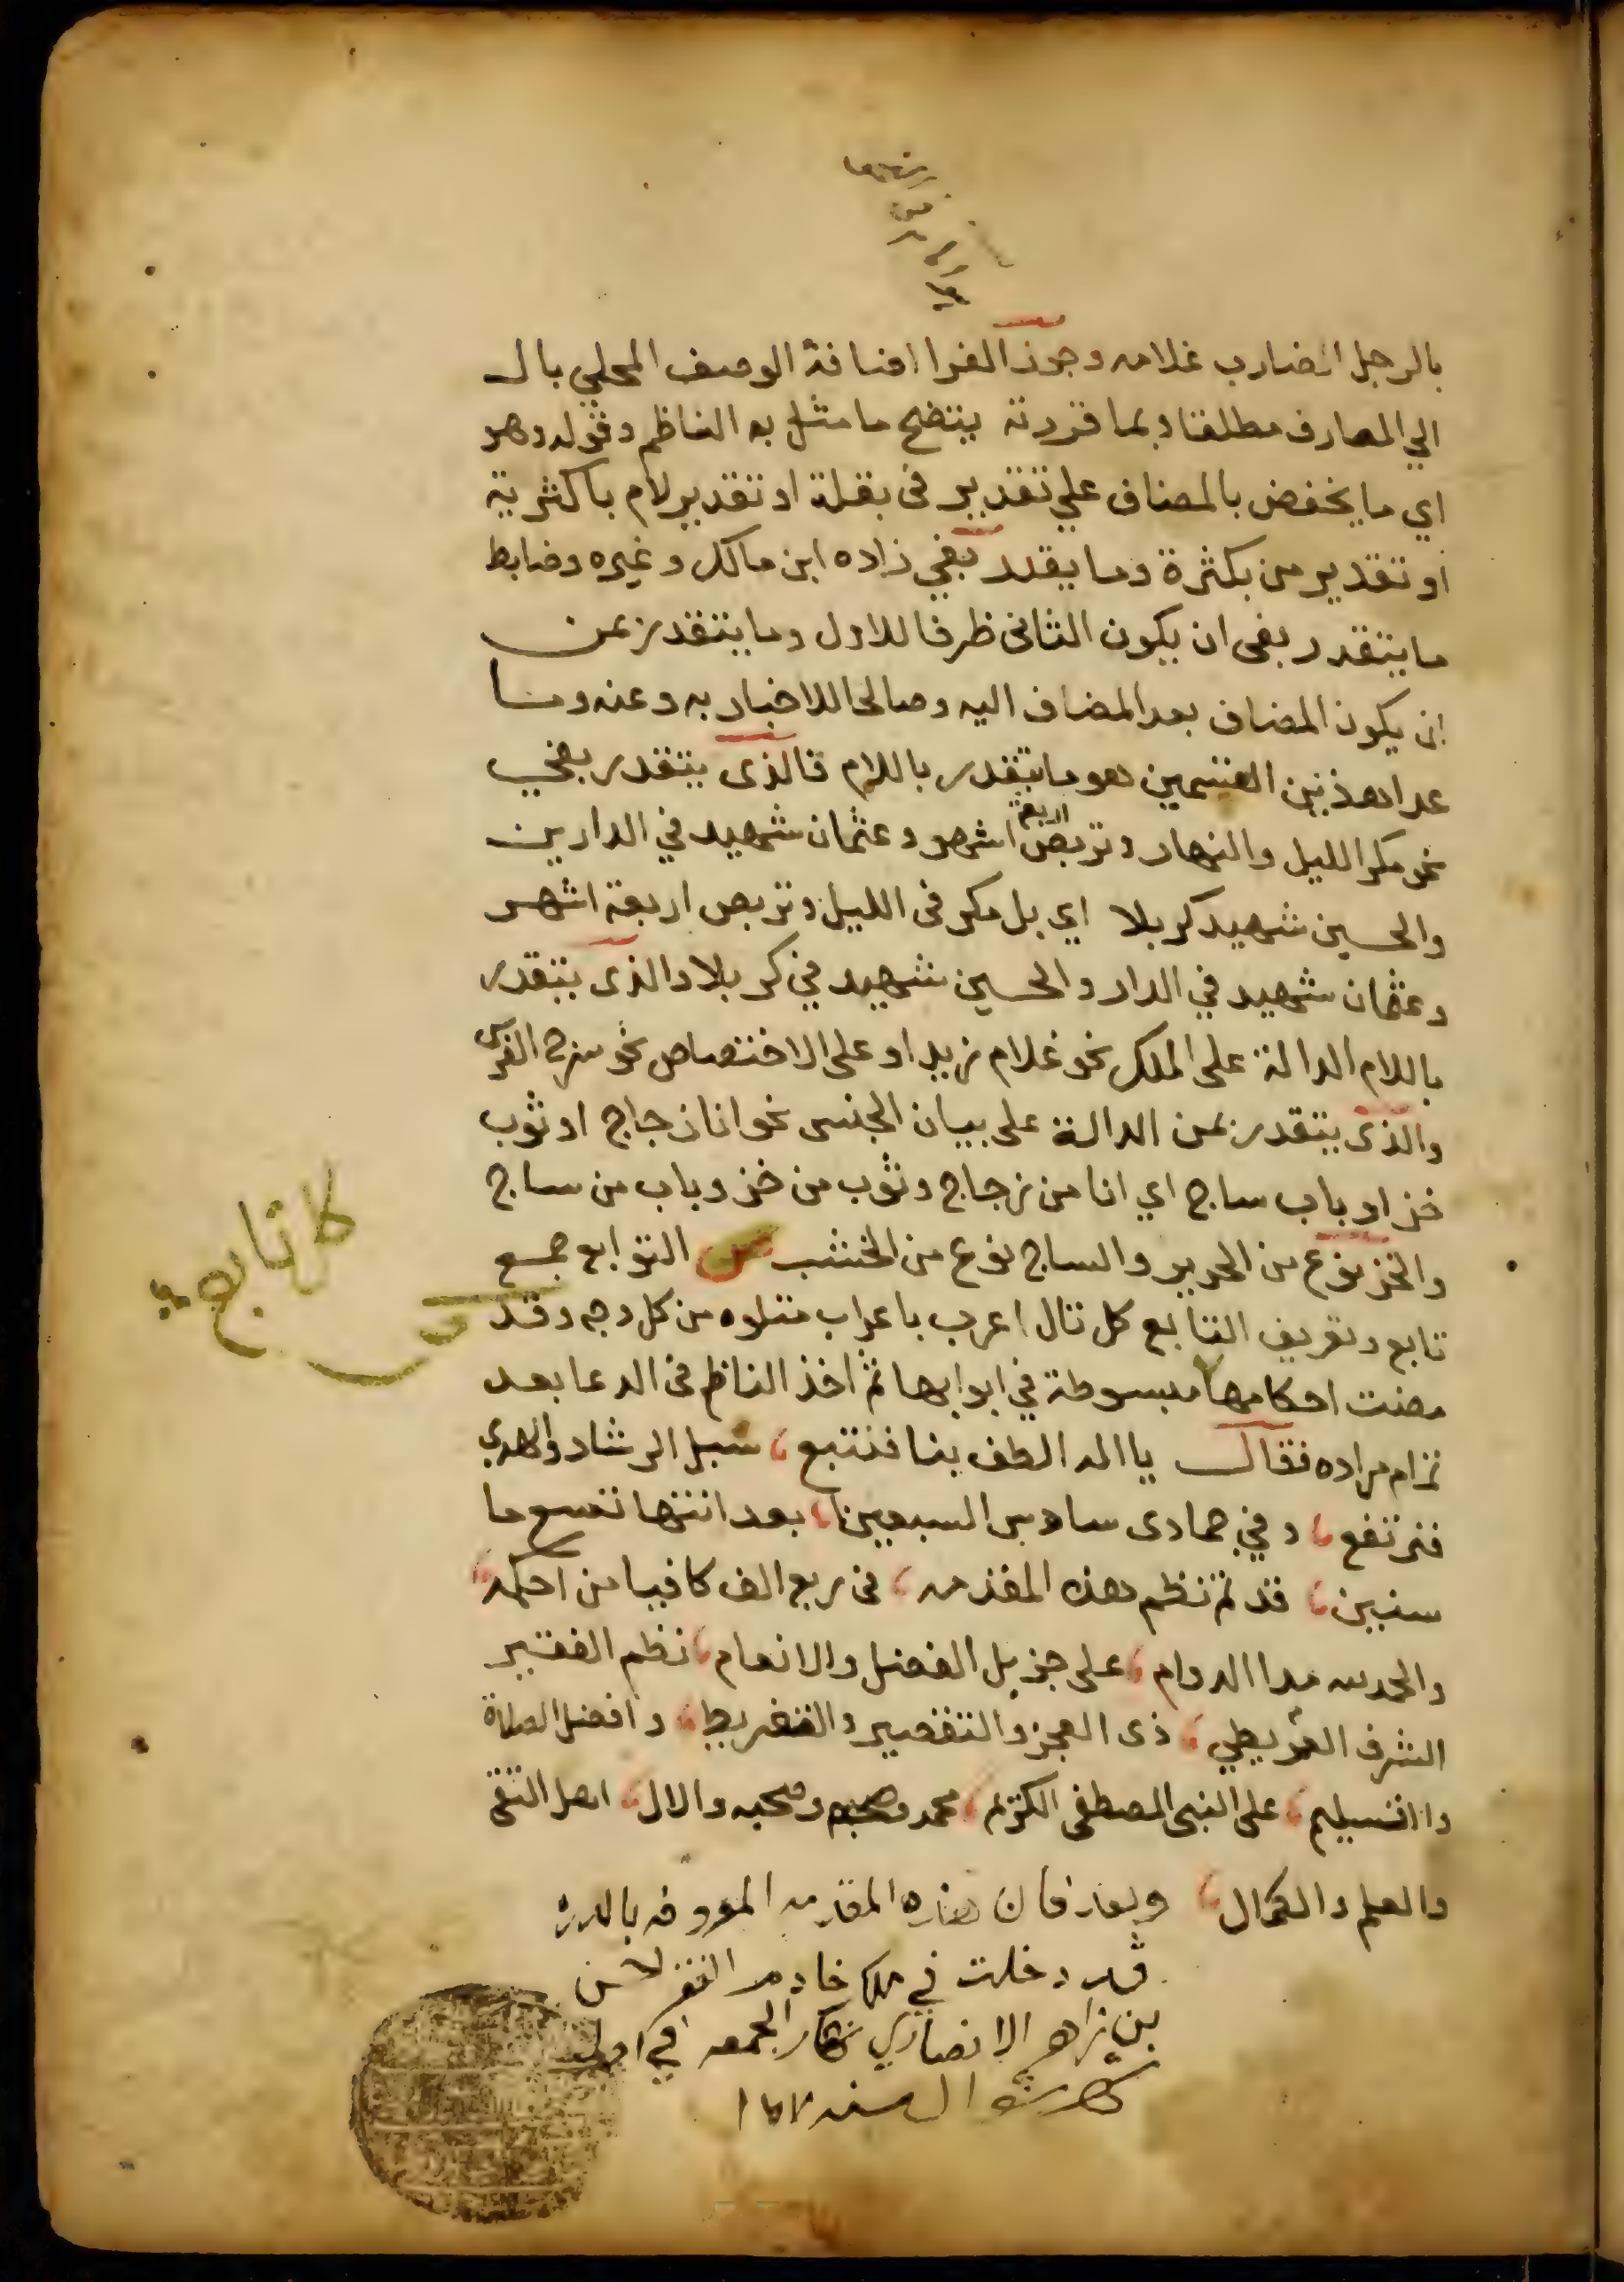 بالرجل الضارب غلامه وجوز الفرا اضافة الوصف المحلي بال
الي المعارف مطلقا وبما قررته يتضح ما مثل به الناظم وقوله وهو
اي ما يخفض بالمضاف علي تقدير في بقلة او تقدير لام باكثرية
او تقدير من بكثرة وما يقدر بفي زاده ابن مالك وغيره وضابط
ما يتقدر بفي ان يكون الثاني ظرفا للاول وما يتقدر بمن
ان يكون المضاف بعد المضاف اليه وصالحا للاخبار به وعنه وما
عدا هذين القسمين هو ما يتقدر باللام فالذي يتقدر بفي
نحو مكر الليل والنهار وتربص اربعة اشهر وعثمان شهيد في الدارين
والحسين شهيد كربلا اي بل مكر في الليل وتربص اربعة اشهر
وعثمان شهيد في الدار والحسين شهيد في كربلا والذي يتقدر
باللام الدالة على الملك نحو غلام زيد او على الاختصاص نحو سرج الفرس
والذي يتقدر بمن الدالة على بيان الجنس نحو انا زجاج او ثوب
خز او باب ساج اي انا من زجاج وثوب من خز وباب من ساج
والخز نوع من الحرير والساج نوع من الخشب التوابع جمع
تابع وتعريف التابع كل تال اعرب باعراب متلوه من كل وجه وقد
مضت احكامها مبسوطة في ابوابها ثم اخذ الناظم في الدعا بعد
تمام مراده فقال يا الله الطف بنا فنتبع سبل الرشاد والهدي
فنرتفع وفي جمادى سادس السبعين بعد انتها تسع ما
سنين قد تم نظم هذه المقدمه في ربع الف كافيا من احكمه
والحمد لله مدا الدوام على جزيل الفضل والانعام نظم الفقير
الشرف العمريطي ذي العجز والتقصير والتفريط وافضل الصلاة
واالتسليم على النبي المصطفى الكريم محمد وصحبه والال اهل التقى
والعلم والكمال وبعد فان هذه المقدمه المعروفه بالدره
قد دخلت في ملك خادم الفقر
بن زاهر الانصاري نهار الجمعه في
كل تابع